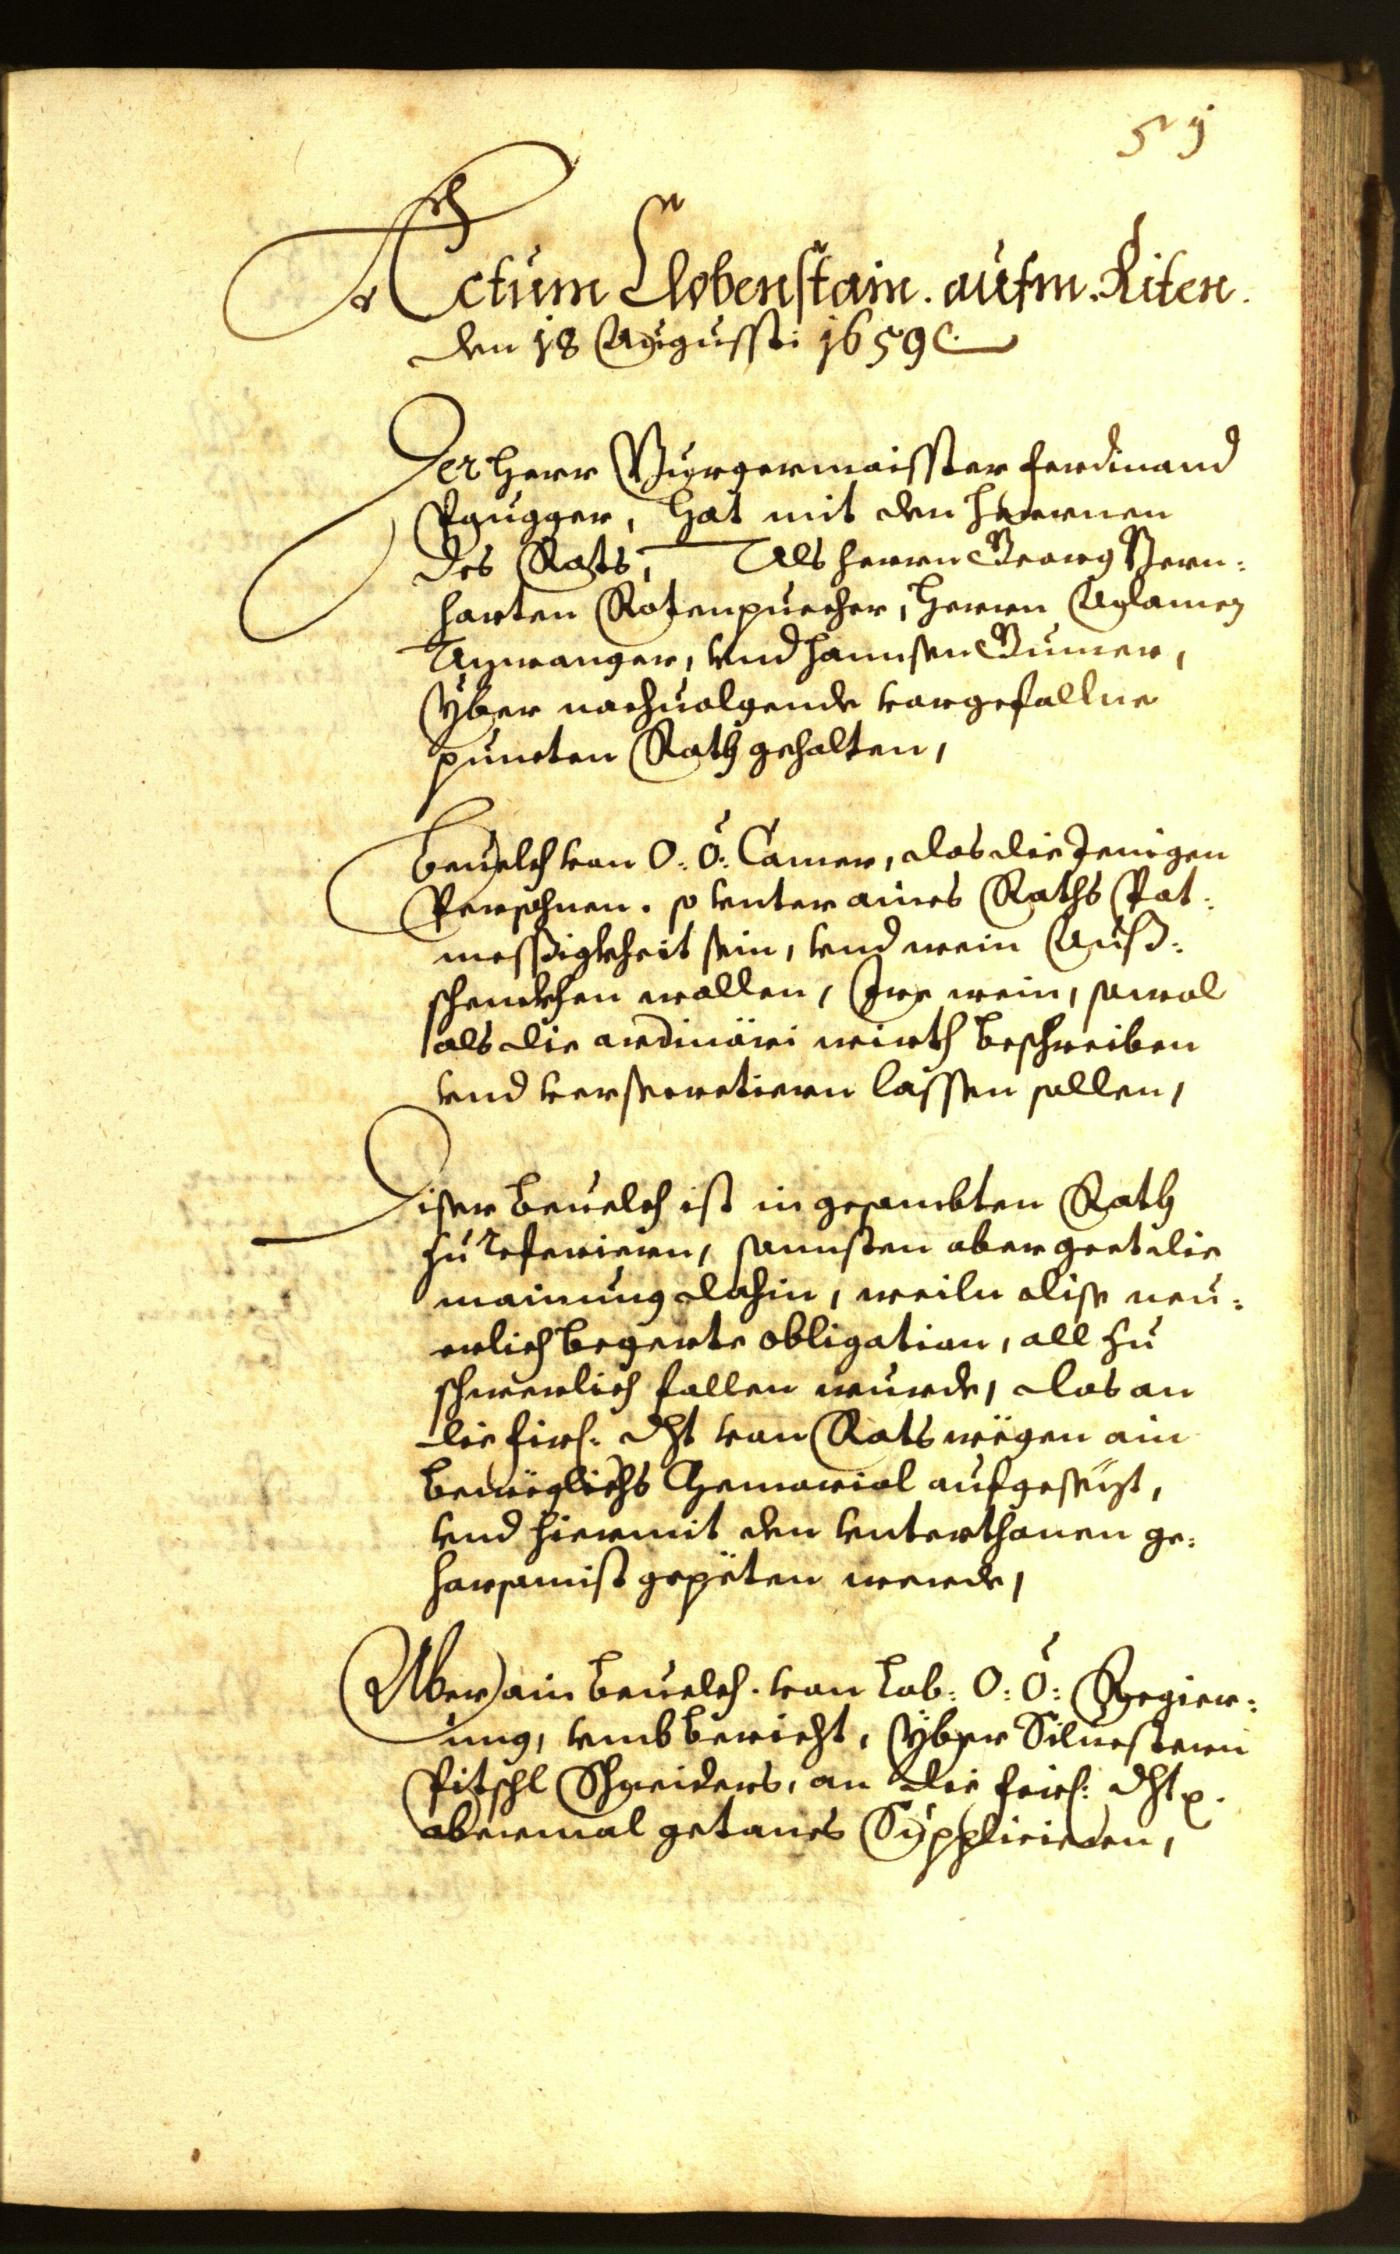 51
Actum Clobenstain. aufm. Riten.
den 18 Augusti 1659
Der Herr Burgermaisster Ferdinand
Paugger, hat mit den Herrnen
des Rats, Als Herrn Georg Bern:
harten Rotenpuecher, Herrn
und Hannsen Gumer,
Yber nachuolgende vorgefallne
puncten Rath gehalten,
Beuelch von O: Ö: Camer, das die Jenigen
Persohnen. so vnter aines Raths Pot:
messßigkheit sein, vnd wein Auß:
schenckhen wollen, Ire wein, sowol
als die ordinäri wirth beschreiben
vnd versecretiern lassen sollen,
Diser beuelch ist in gesambten Rath
zu referieren, sonnsten aber geet die
mainung dahin, weiln dise neu:
erlich begerte obligation, all zu
schwerlich fallen wurde, das an
die fürl: Dht von Rats wëgen ain
bewëglichs Memorial aufgesëzt,
vnd hiermit den vnterthonen ge:
horsamist gepëten werde,
Uber ain beuelch. von Lob: O: Ö: Regier:
ung, vmb bericht, Yber Siluestern
Pitschl Schneiders, an die fürl: Dht
abermal getanes Supplicieren,